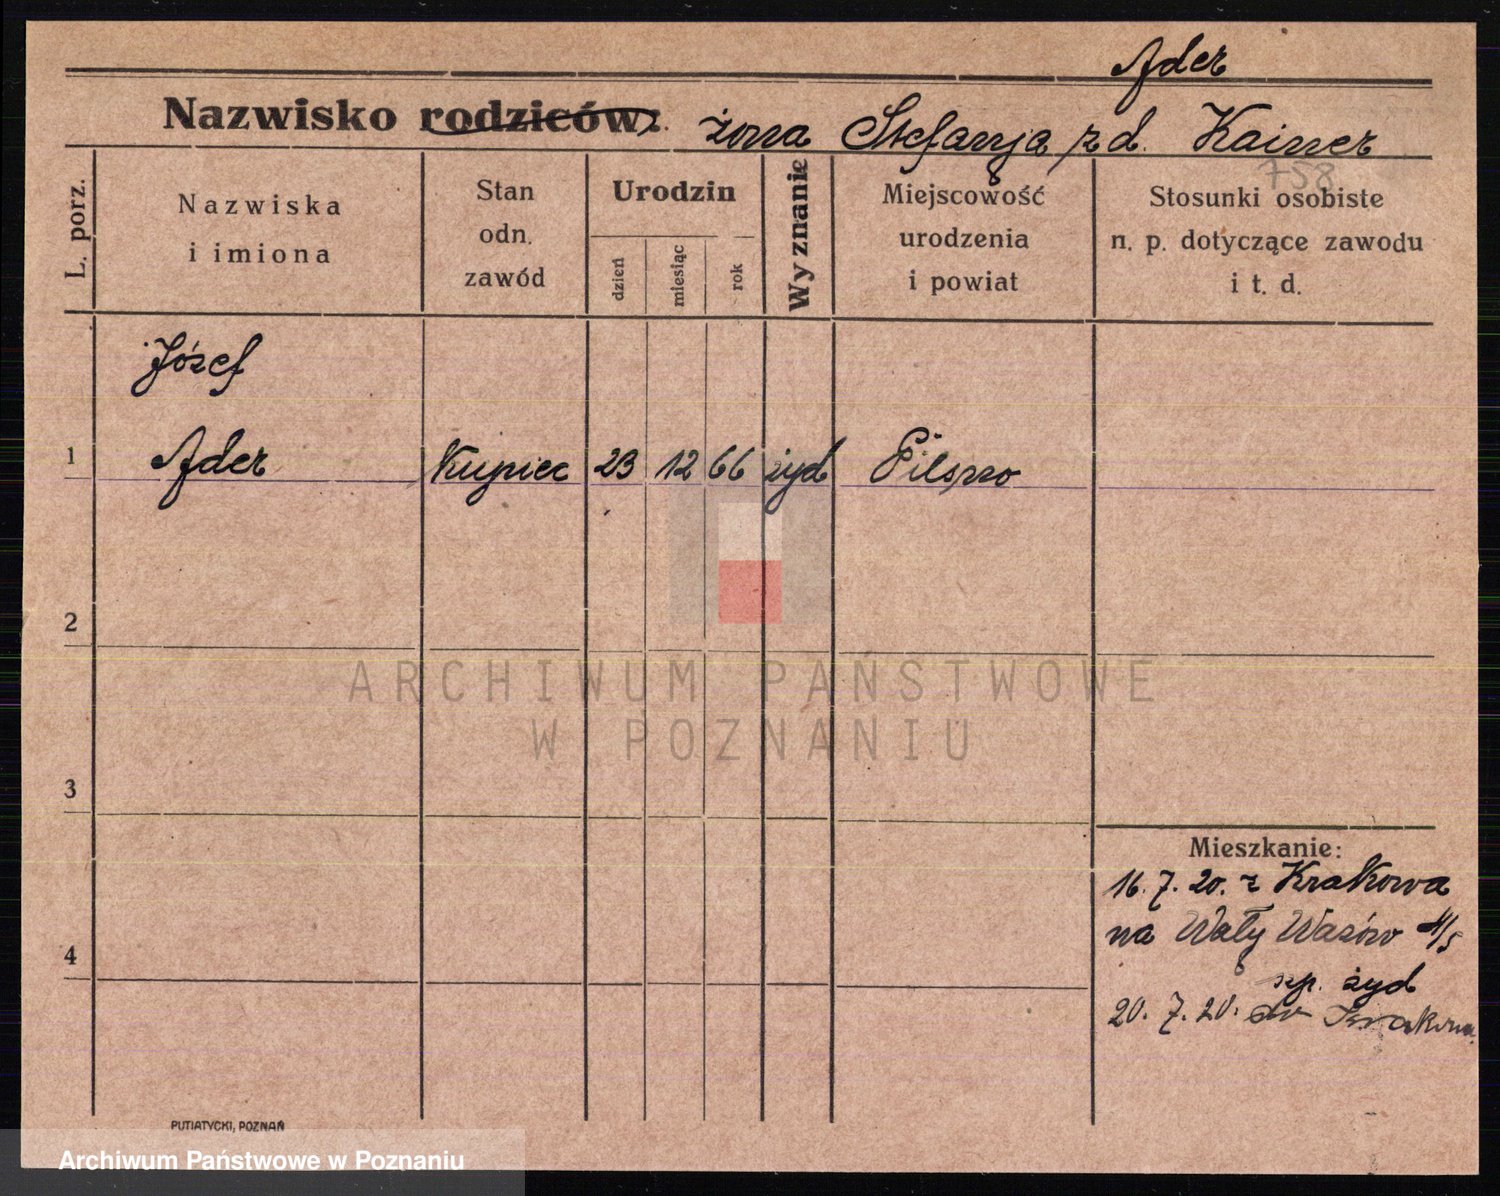 Ader
Nazwisko rodziców: żona Stefanja z d. Kainer
758
L. porz.
Nazwiska i imiona
Stan odn. zawód
Urodzin
dzień
miesiąc
rok
Wyznanie
Miejscowość urodzenia i powiat
Stosunki osobiste n. p. dotyczące zawodu i t. d.
Józef
1 Ader Kupiec 23 12 66 żyd Pilszno
2
ARCHIWUM PAŃSTWOWE
W POZNANIU
3
Mieszkanie:
16. 7. 20. z Krakowa
na Wały Wazów
4
szp. żyd
20. 7. 20. do Krakowa
PUTIATYCKI, POZNAŃ
Archiwum Państwowe w Poznaniu